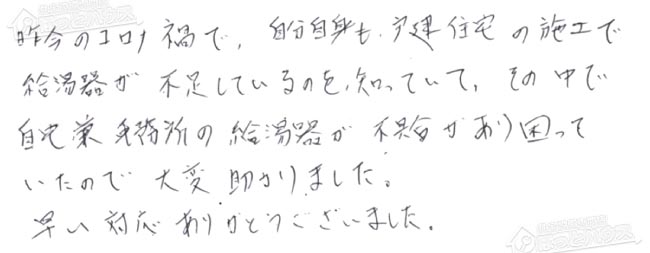 昨今のコロナ禍で、自分自身も戸建住宅の施工で
給湯器が不足しているのを知っていて、その中で
自宅兼事務所の給湯器が不具合があり困って
いたので大変助かりました。
早い対応ありがとうございました。